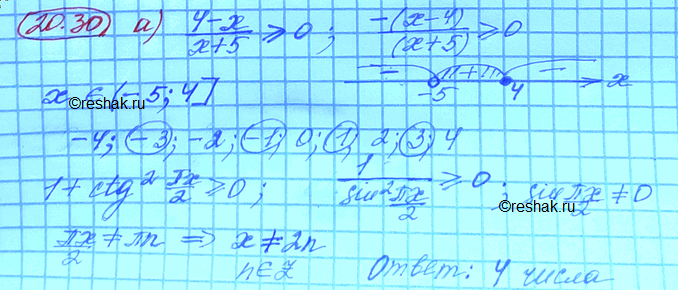 20.30 а) (4-x)/(x+5) ≥ 0 ; -(x-4)/(x+5) ≥ 0
- + - x
-5 4
x ∈ (-5; 4]
©reshak.ru
-4; -3; -2; -1; 0; 1; 2; 3; 4
1 + ctg² πx/2 ≥ 0 ; 1/(sin² πx/2) ≥ 0 ; sin πx/2 ≠ 0
©reshak.ru
πx/2 ≠ πn ⇒ x ≠ 2n
n∈Z Ответ: 4 числа
©reshak.ru